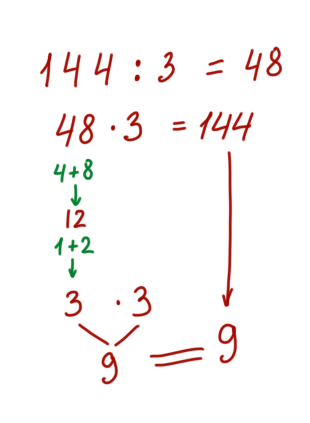 144 : 3 = 48
48 · 3 = 144
4+8
12
1+2
3 · 3
9 = 9